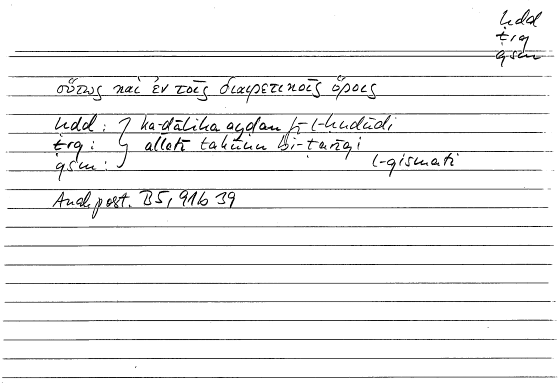 ḥdd
ṭrq
qsm
οὕτως καὶ ἐν τοῖς διαιρετικοῖς ὅροις
ḥdd : } ka-ḏālika ayḍan fī l-ḥudūdi
ṭrq : } allatī takūnu bi-ṭarīqi
qsm : } l-qismati
Anal. post. B5, 91b 39